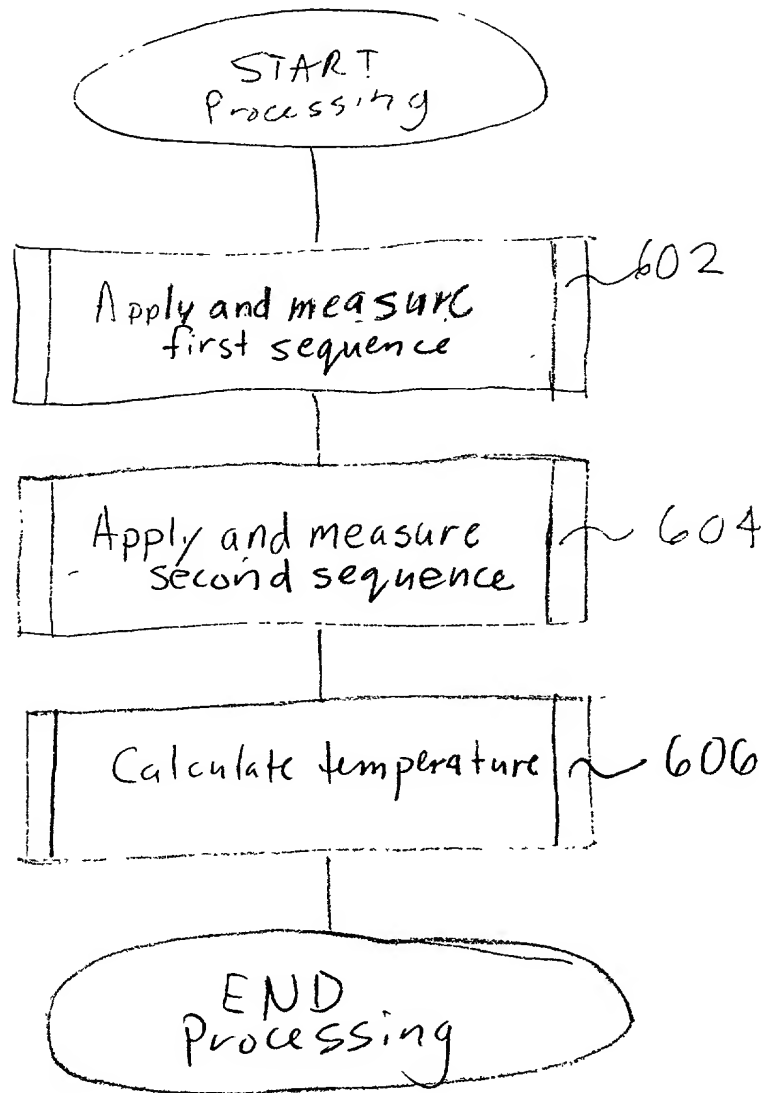 START
Processing
602
Apply and measure
first sequence
604
Apply and measure
second sequence
Calculate temperature
606
END
Processing